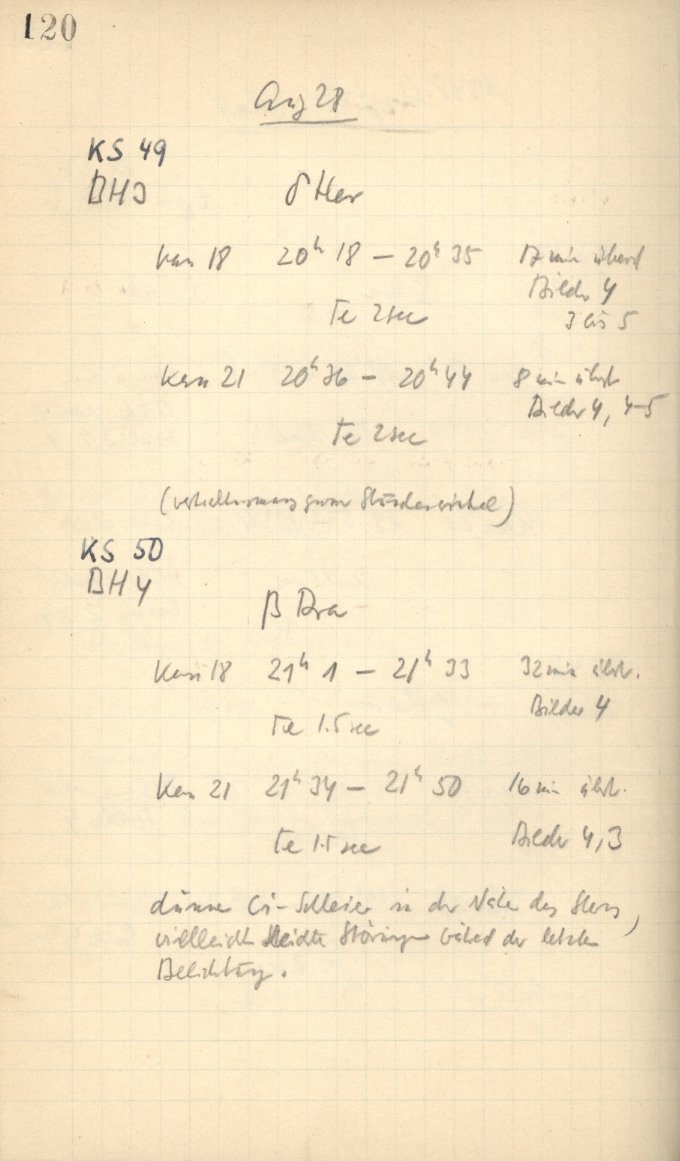 120
Aug 28
KS 49
BH3
δ Her
Kan 18 20h 18 – 20h 35 17 min
Bilder 4
3 bis 5
Te 2 sec
Kan 21 20h 36 – 20h 44 8 min
Bilder 4, 4–5
Te 2 sec
Stundenwinkel)
KS 50
BH4
β Dra
Kan 18 21h 1 – 21h 33 32 min
Bilder 4
Te 1.5 sec
Kan 21 21h 34 – 21h 50 16 min
Bilder 4, 3
Te 1.5 sec
dünne Ci-Schleier in der Nähe des Sterns,
vielleicht leichte Störungen der letzten
Belichtung.